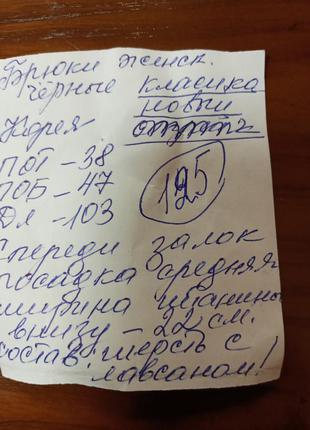 Брюки женск.
чёрные класика
новый
Корея
ПОТ - 38
ПОБ - 47
125
Дл - 103
Спереди залок
посадка средняя
ширина штанины
внизу - 22 см.
состав: шерсть с
лавсаном!